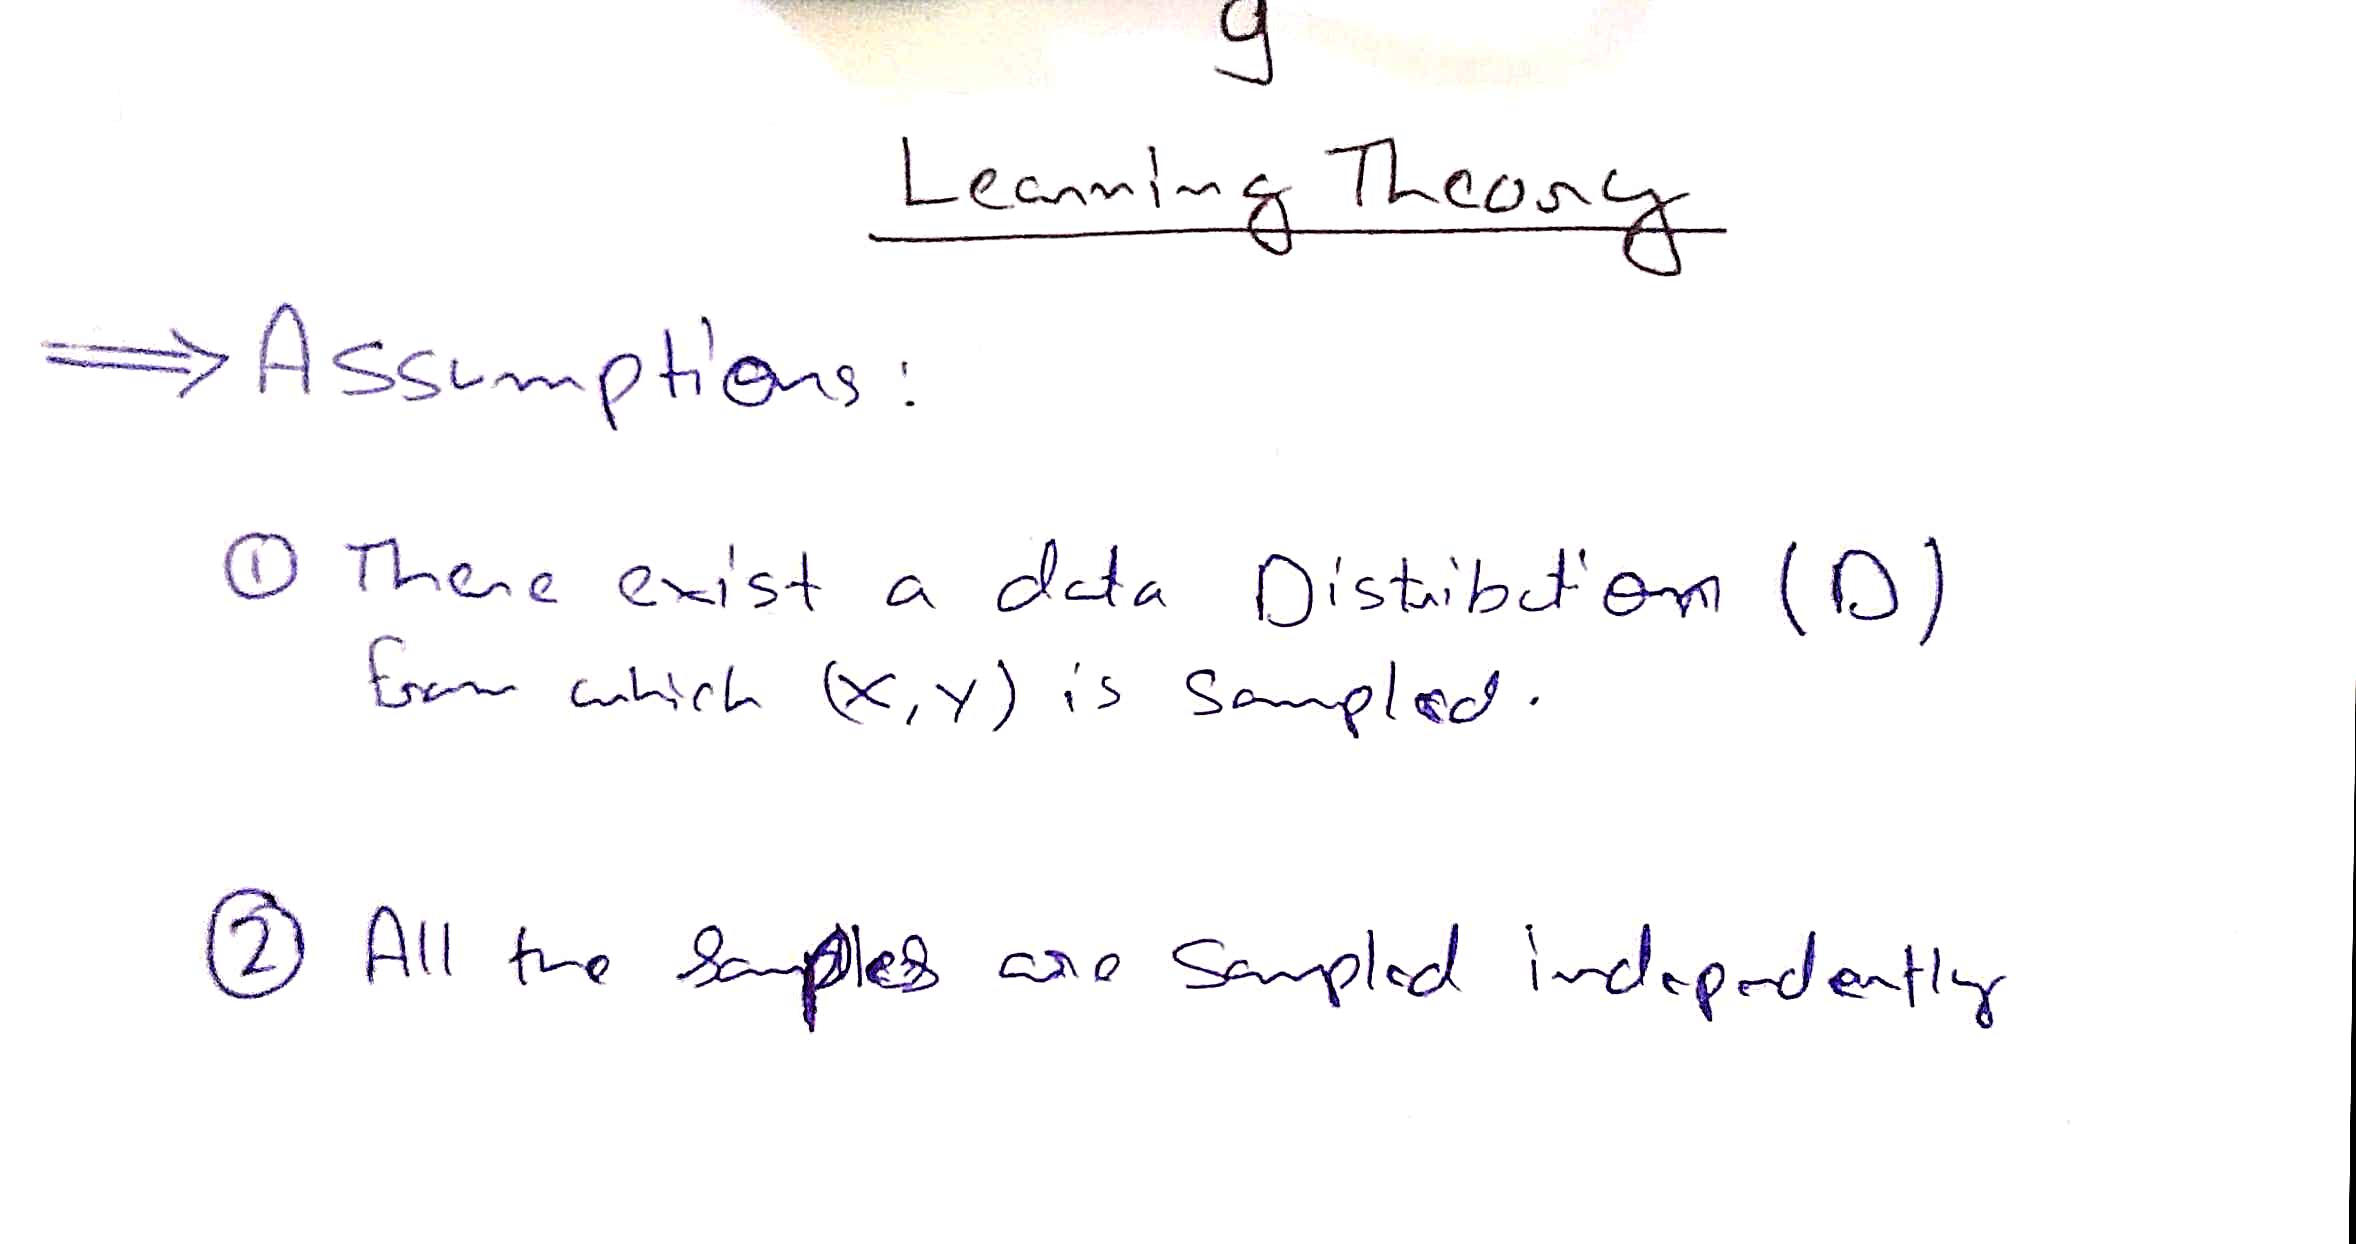 9
Learning Theory
⟹ Assumptions:
① There exist a data Distribution (D)
from which (X, Y) is sampled.
② All the samples are sampled independently